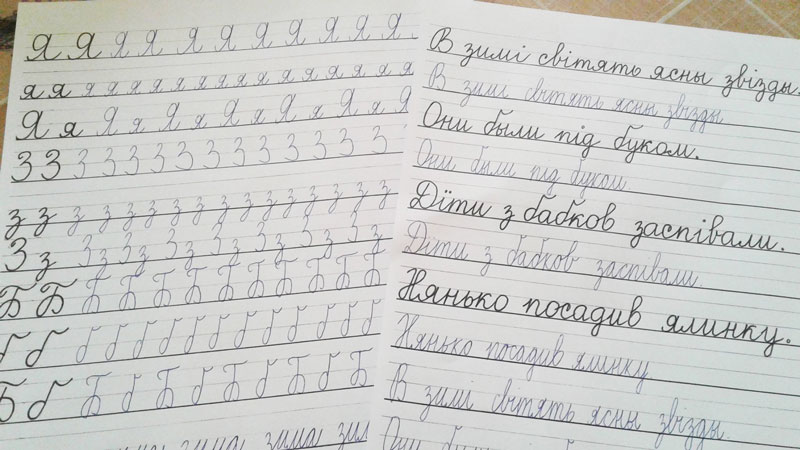 Я Я Я Я Я Я Я Я Я Я Я
я я я я я я я я я я я я я я я я
Я я Я я Я я Я я Я я Я я Я
З З З З З З З З З З З З З З
з з з з з з з з з з з з з з з з
З з З з З з З з З з З з З з
Б Б Б Б Б Б Б Б Б Б Б Б
б б б б б б б б б б б б б б
Б б Б б Б б Б б Б б Б
зима зима
В зимі світять ясны звізды.
В зимі світять ясны звізды
Они были під буком.
Они были під буком
Дїти з бабков заспівали.
Дїти з бабков заспівали.
Нянько посадив ялинку.
Нянько посадив ялинку
В зимі світять ясны звізды.
Они